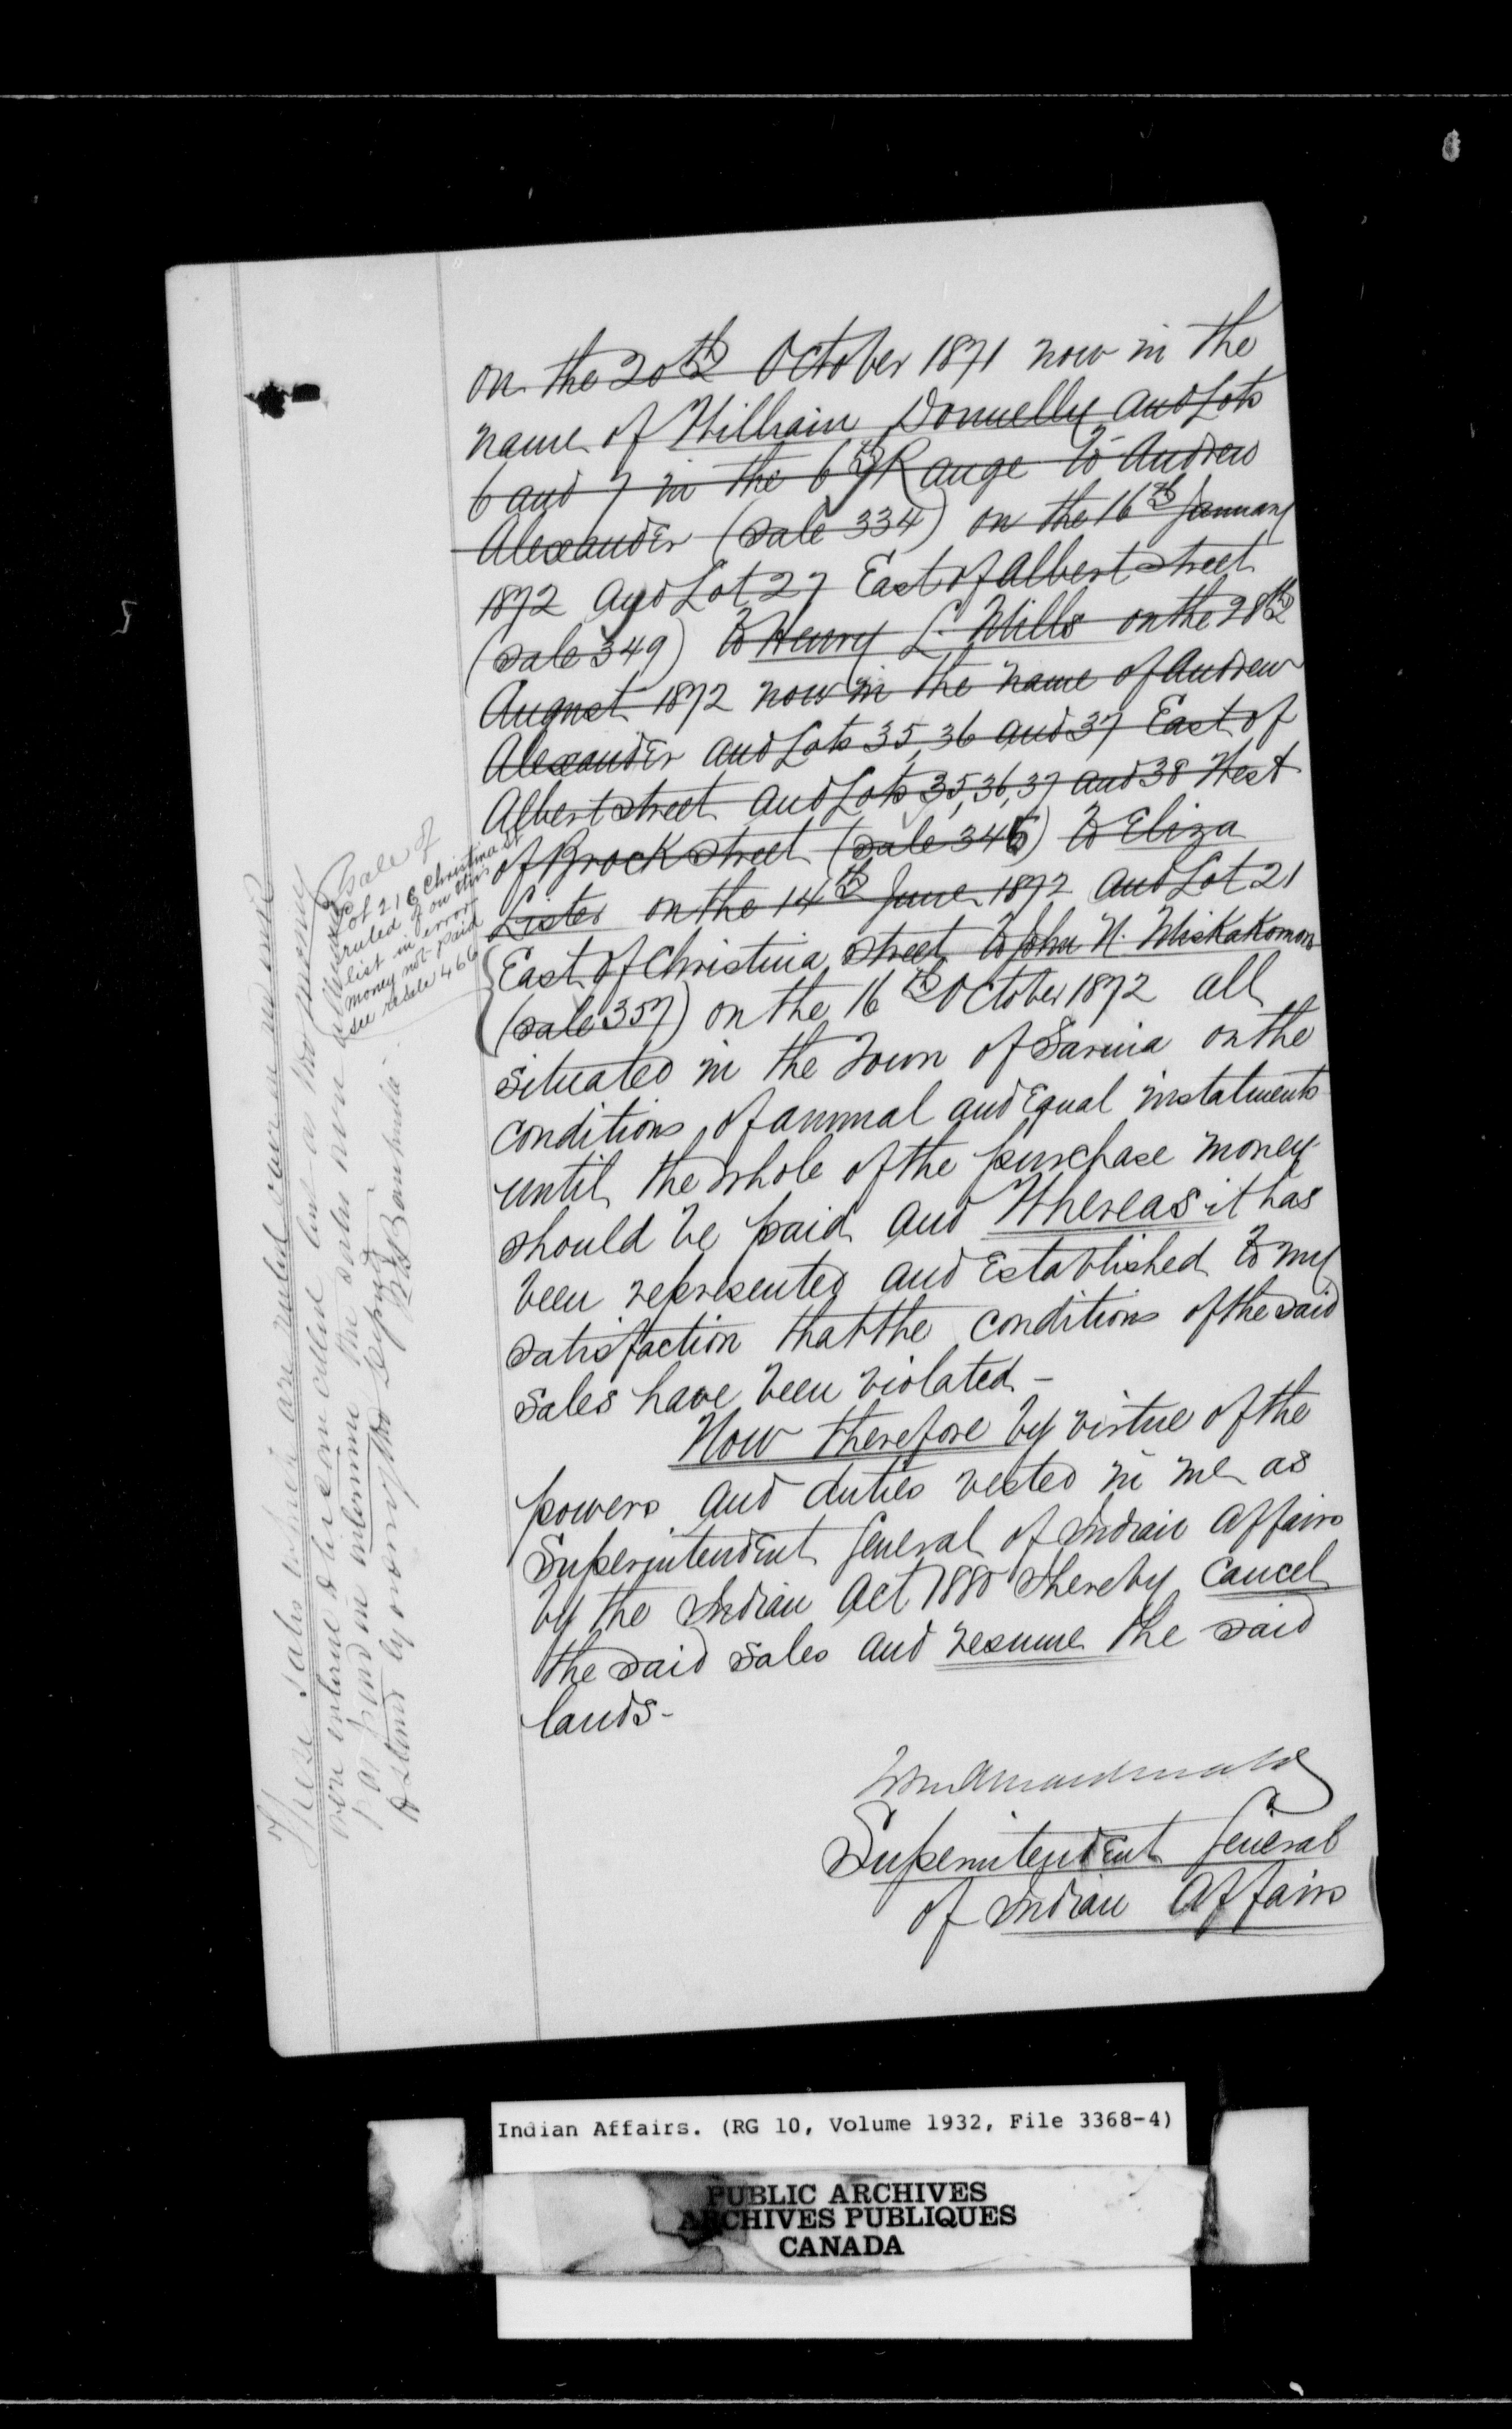 on the 20th October 1871 now in the
name of William Donnelly and Lots
6 and 7 in the 6th Range to Andrew
Alexander (Sale 334) on the 16th January
1872 and Lot 27 East of Albert street
(Sale 349) to Henry L. Mills on the 28th
August 1872 now in the name of Andrew
Alexander and Lots 35, 36 and 37 East of
Albert street and Lots 35, 36, 37 and 38 West
of Brock street (Sale 345) to Eliza
Lister on the 14th June 1872 and Lot 21
East of Christina street to John N. Miskokomon
(Sale 357) on the 16th October 1872 all
situated in the Town of Sarnia on the
conditions of annual and Equal instalments
until the whole of the purchase money
should be paid and Whereas it has
been represented and Established to my
satisfaction that the conditions of the said
sales have been violated -
Now therefore by virtue of the
powers and duties vested in me as
Superintendent General of Indian Affairs
by the Indian Act 1880 I hereby cancel
the said sales and resume the said
lands -
Superintendent General
of Indian Affairs
Sale of
Lot 21 E Christina St
ruled on this
list in error
money not paid
see resale 466
These sales which are ruled
paid in
the sales now
by
Indian Affairs. (RG 10, Volume 1932, File 3368-4)
PUBLIC ARCHIVES
ARCHIVES PUBLIQUES
CANADA